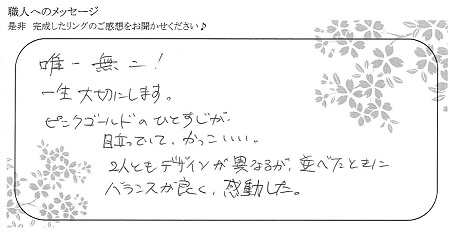 職人へのメッセージ
是非 完成したリングのご感想をお聞かせください♪
唯一無二!
一生大切にします。
ピンクゴールドのひとすじが
目立っていて、かっこいい。
2人ともデザインが異なるが、並べたときに
バランスが良く、感動した。